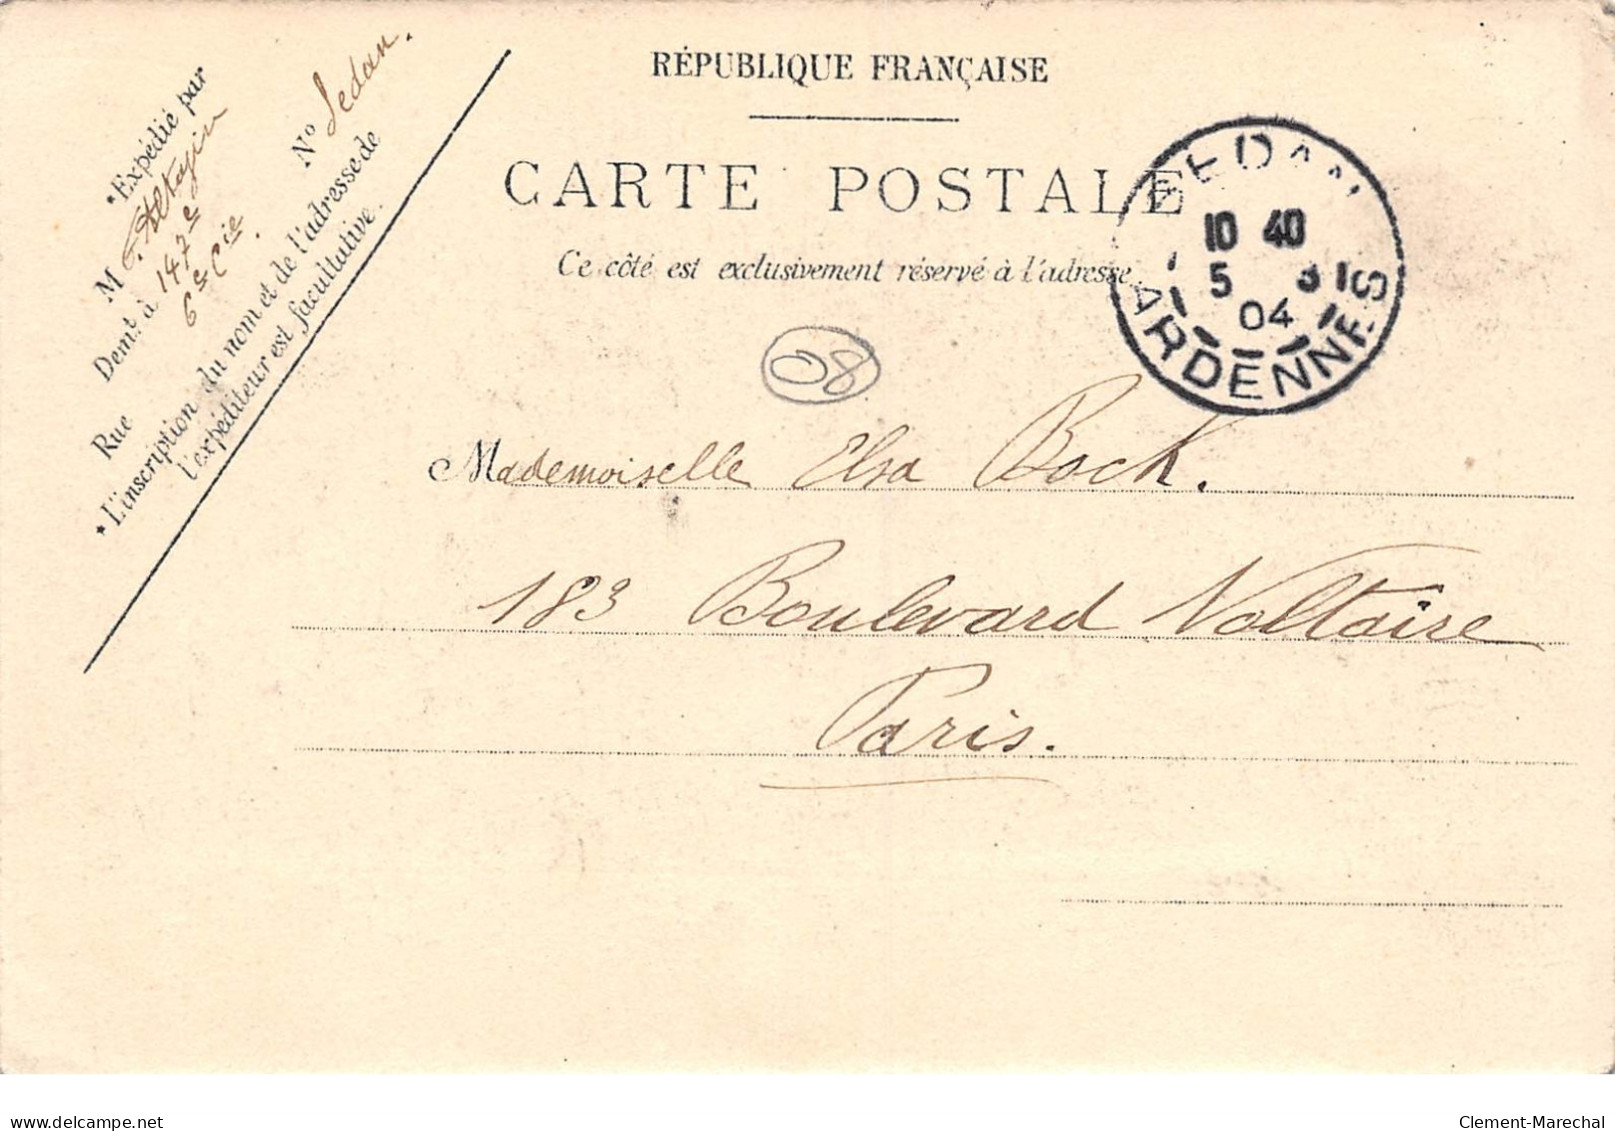 RÉPUBLIQUE FRANÇAISE
CARTE POSTALE
Ce côté est exclusivement réservé à l'adresse.
*Expédié par
M
Demt. à 147e
6e Cie.
Rue Nº Sedan.
*L'inscription du nom et de l'adresse de
l'expéditeur est facultative.
SEDAN
10 40
5 3
04
ARDENNES
08
Mademoiselle Elsa Bock.
183 Boulevard Voltaire
Paris.
delcampe.net
Clement-Marechal